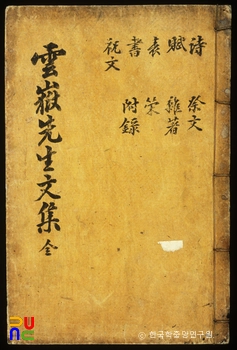 詩 祭文
賦 雜著
表 策
書 附錄
祝文
雲嶽先生文集 全
© 한국학중앙연구원